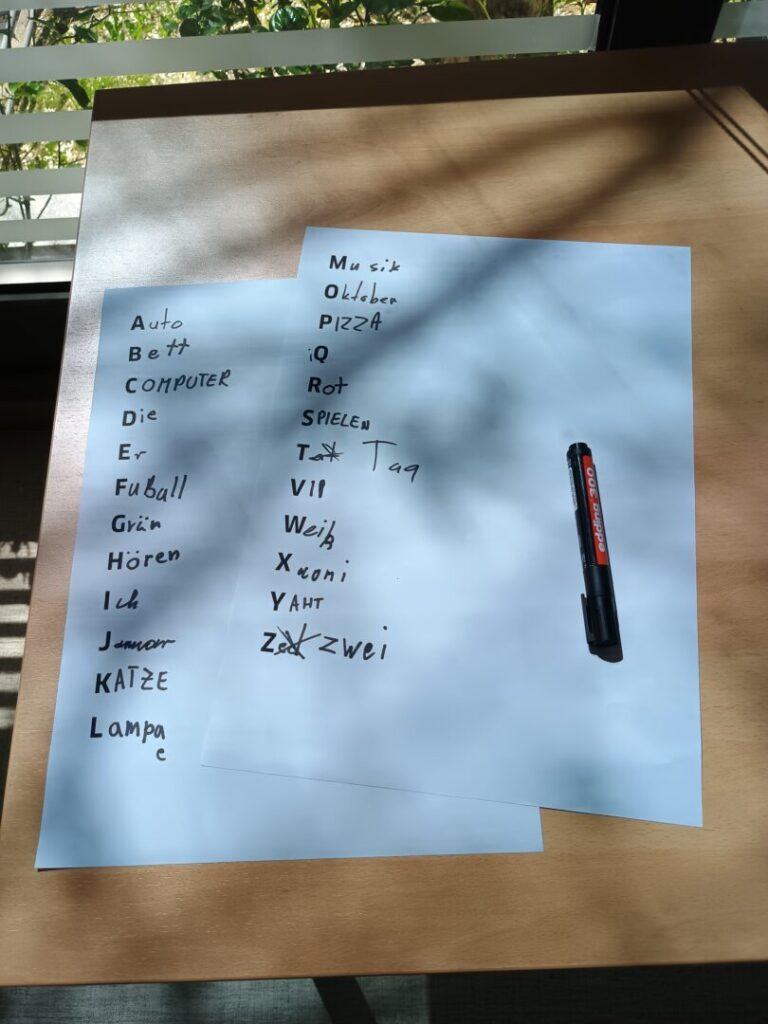 Auto
Bett
COMPUTER
Die
Er
Fußball
Grün
Hören
Ich
Januar
KATZE
Lampa
e
Musik
Oktober
PIZZA
iQ
Rot
SPIELEN
Tag
VIP
Weiß
Xaomi
YAHT
zwei
edding 300